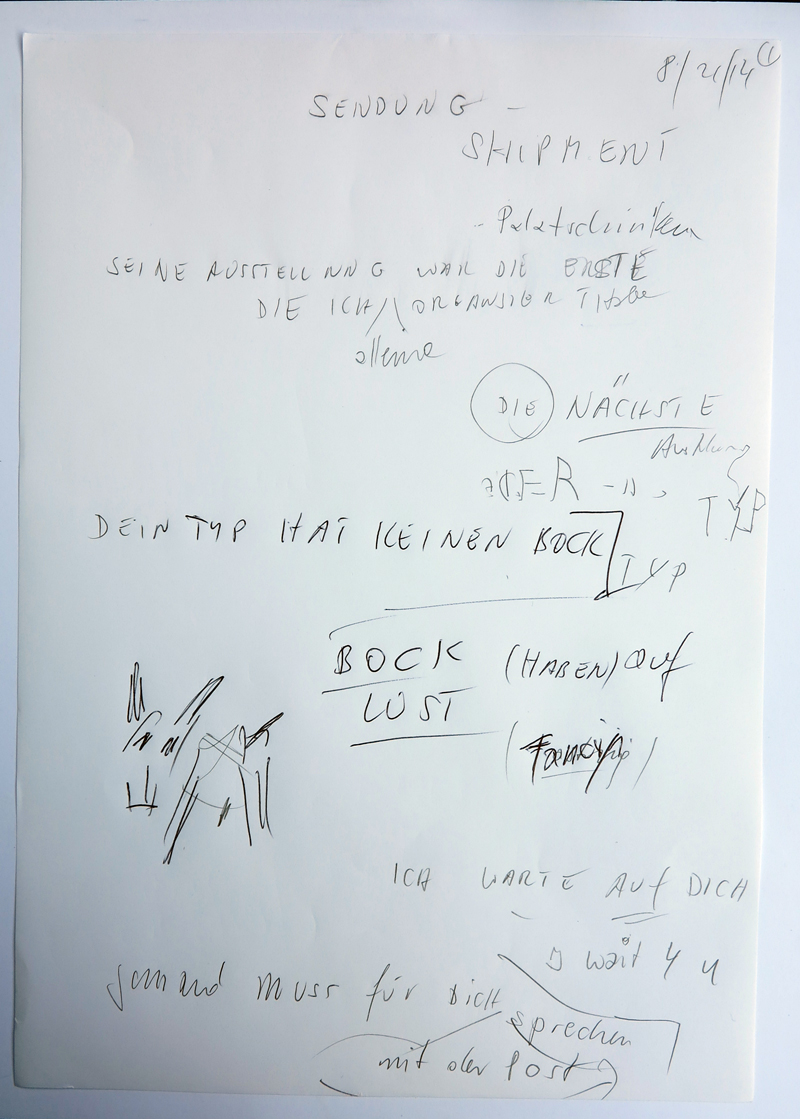 8/21/14 (1
SENDUNG -
SHIPMENT
- Palatschinken
SEINE AUSSTELLUNG WAR DIE ERSTE
DIE ICH / \ ORGANSIERT Habe
alleine
DIE NÄCHSTE
DER - " -
TYP
DEIN TYP HAT KEINEN BOCK
TYP
BOCK (HABEN) auf
LUST
ICH WARTE AUf DICH
I wait 4 u
Jemand muss für DICH
sprechen
mit der Post